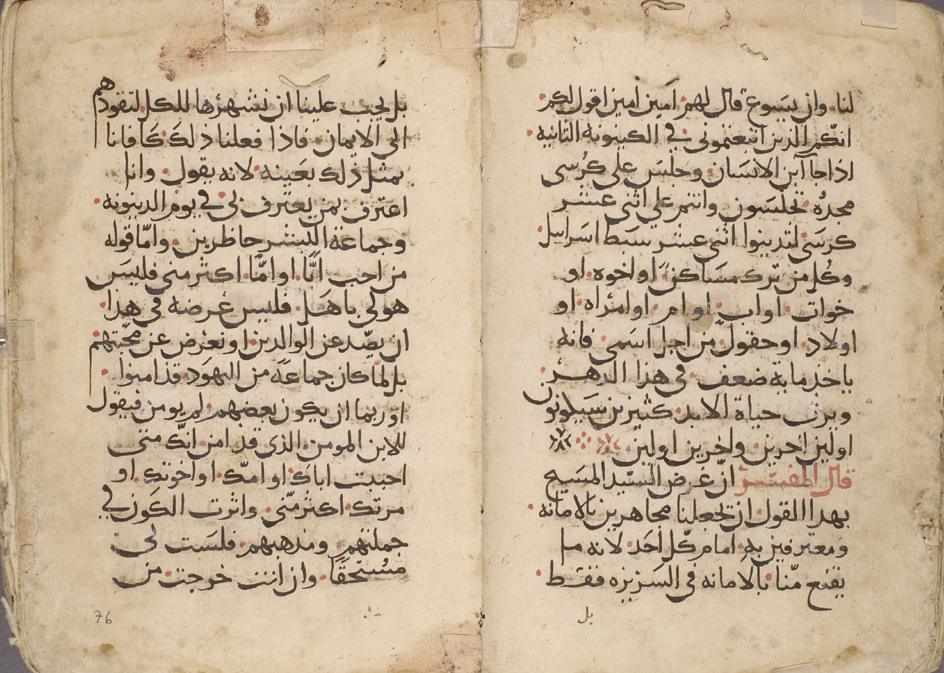 لنا. وان يسوع قال لهم امين امين اقول لكم
انكم الدين اتبعتمونى فى الكينونه الثانيه
ادا جا ابن الانسان وجلس على كرسى
مجده تجلسون وانتم على اثنى عشر
كرسى لتدينوا اثنى عشر سبط اسراىل
وكل من ترك مساكن او اخوه او
خوات او اب او ام او امراه او
اولاد او حقول من اجل اسمى فانه
ياخد مايه ضعف فى هدا الدهر
ويرث حياة الابد كثيرين سيكونون
اولين اخرين واخرين اولين
قال المفسر ان غرض السيد المسيح
بهدا القول ان يجعلنا مجاهرين بالامانه
ومعترفين به امام كل احد لانه ما
يقنع منا بالامانه فى السريره فقط
بل
بل يجب علينا ان نشهرها للكل لتقودهم
الى الايمان. فادا فعلنا دلك كافانا
بمثل دلك بعينه لانه يقول وانا
اعترف بمن يعترف بى فى يوم الدينونه
وجماعة البشر حاظرين. واما قوله
من احب ابا او اما اكثر منى فليس
هو لى باهل فليس غرضه فى هدا
ان يصد عن الوالدين او يعرض عن محبتهم
بل لما كان جماعه من اليهود قد امنوا
او ربما ان يكون بعضهم لم يومن فيقول
للابن المومن الدى قد امن انك متى
احببت اباك او امك او اخوتك او
مرتك اكثر منى واثرت الكون فى
جملتهم ومدهبهم فلست لى
مستحقا. وان انت خرجت من
76